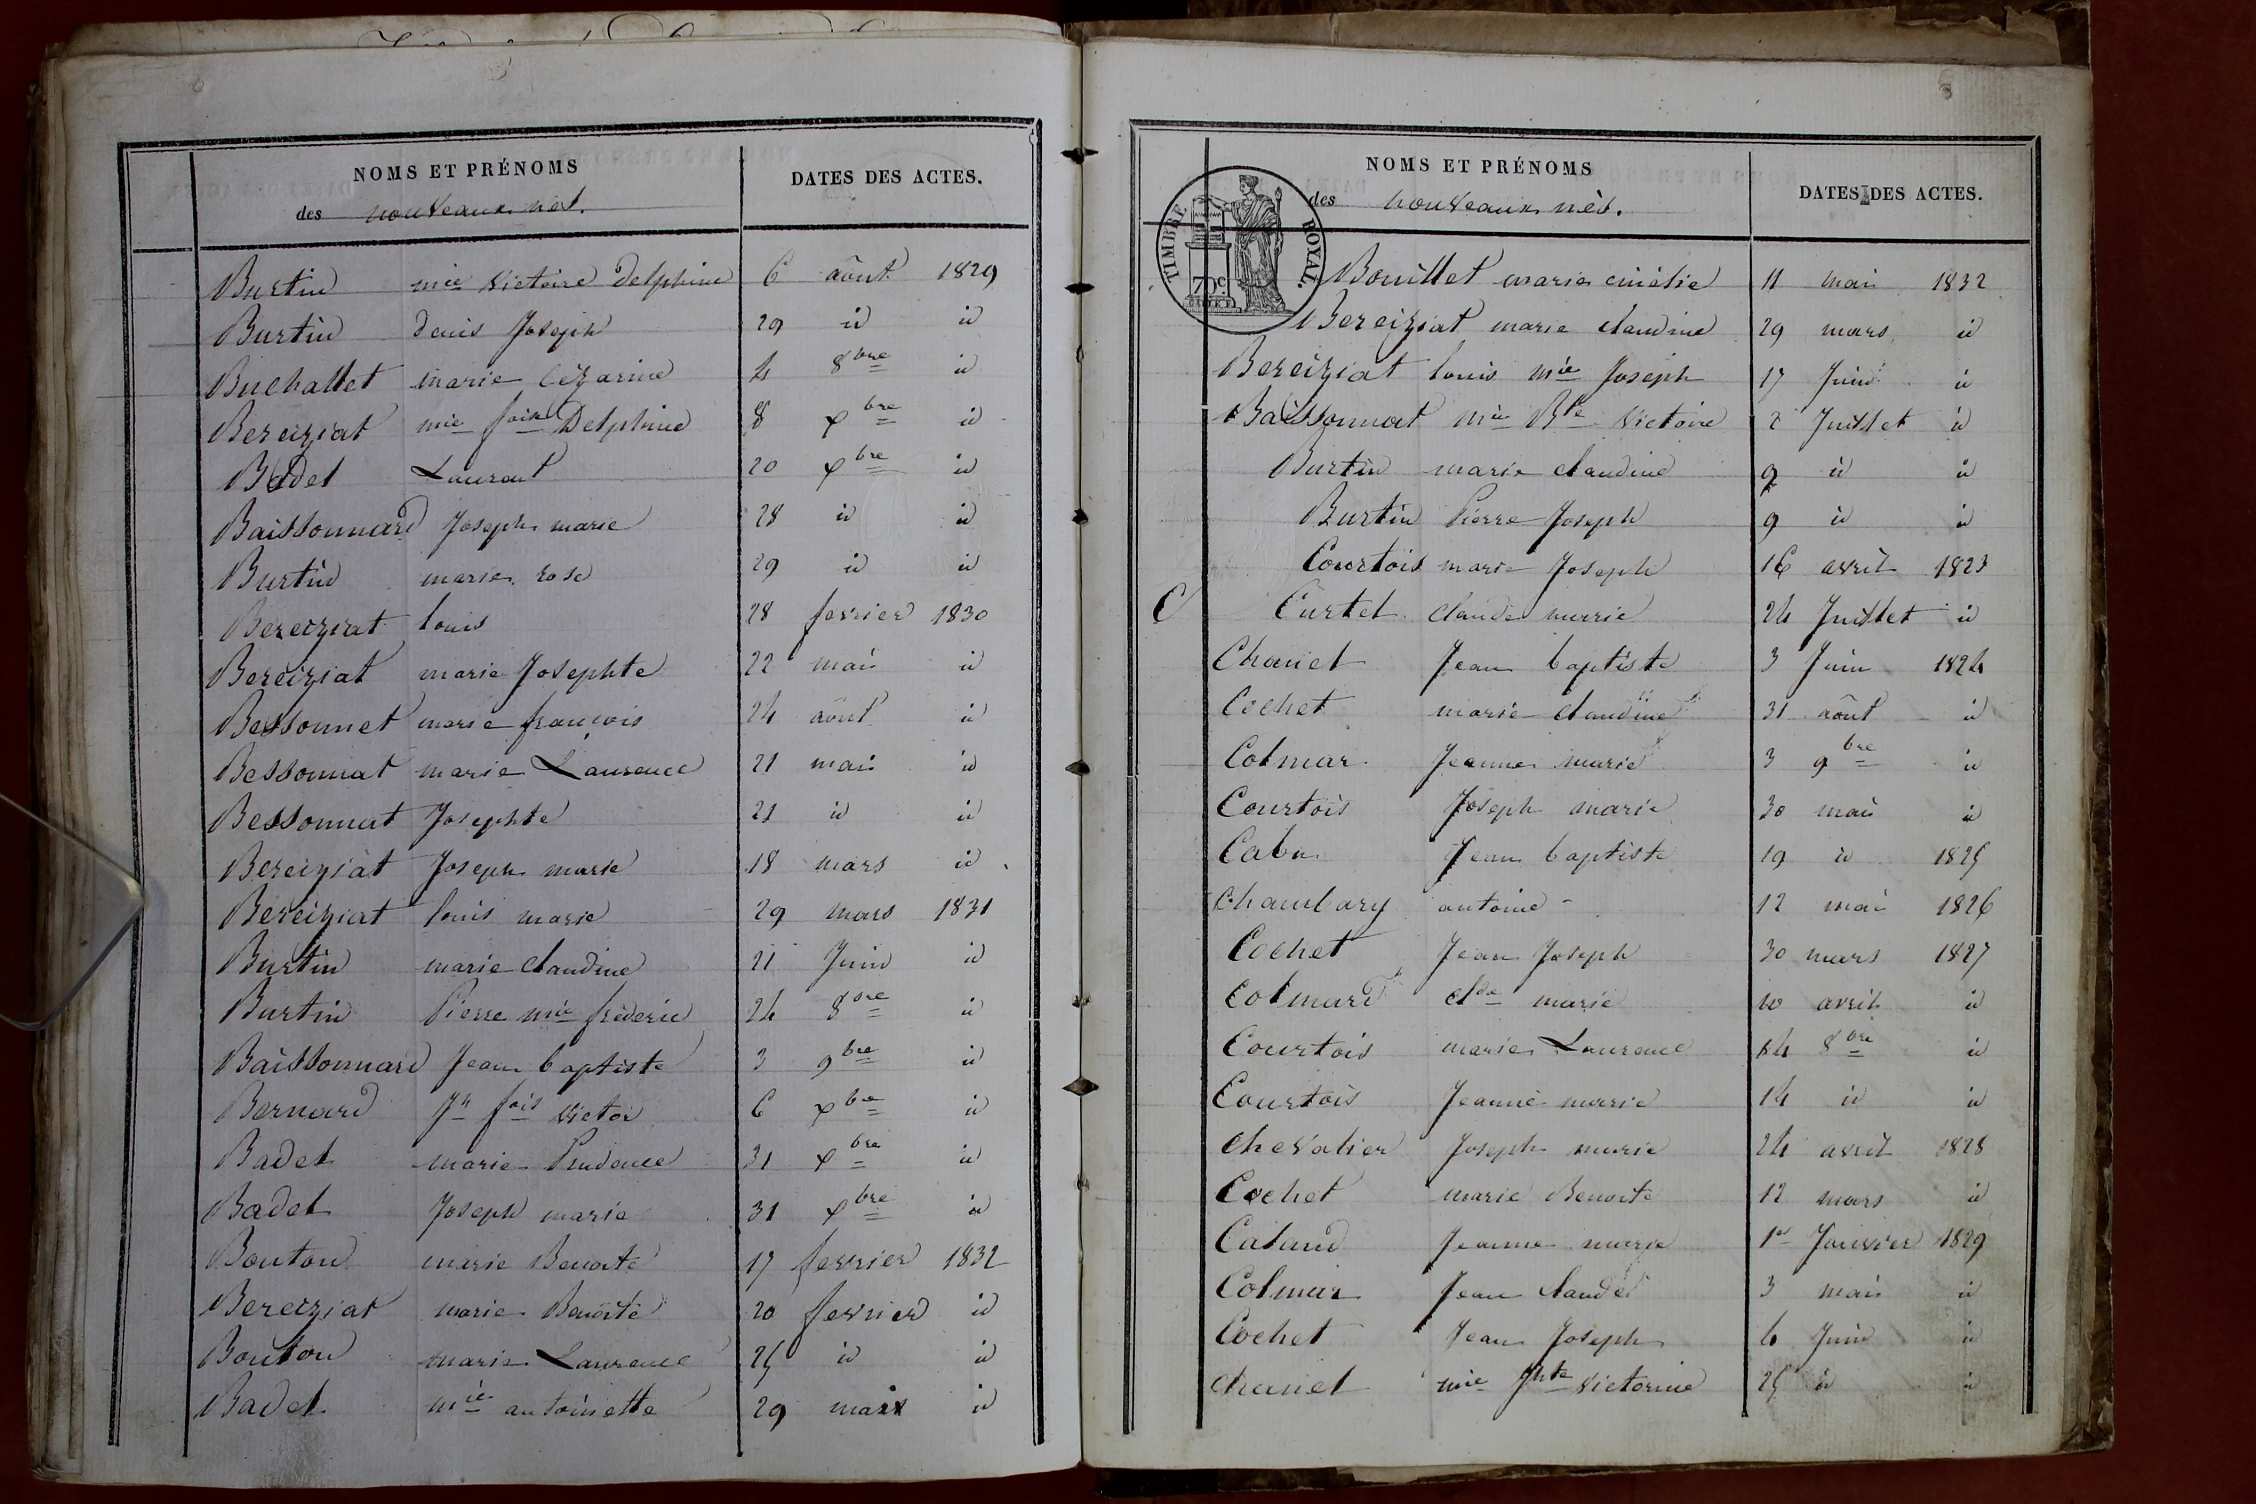 NOMS ET PRÉNOMS
des nouveaux nés.
DATES DES ACTES.
Burtin mie Victoire Delphine 6 aôut 1829
Burtin denis Joseph 29 id id
Buchallet marie Cézarine 4 8bre id
Bereiziat mie foise Delphine 8 xbre id
Badet Laurent 20 xbre id
Baissonnard Joseph marie 28 id id
Burtin marie rose 29 id id
Bereiziat louis 28 fevrier 1830
Bereiziat marie Josephte 22 mai id
Bessonnet marie françois 24 aôut id
Bessonnat marie Laurence 21 mai id
Bessonnat Josephte 21 id id
Bereiziat Joseph marie 18 mars id
Bereiziat louis marie 29 mars 1831
Burtin marie claudine 21 Juin id
Burtin Pierre mie fréderic 24 8bre id
Baissonnard Jean baptiste 3 9bre id
Bernard Jh fois victor 6 xbre id
Badet marie Prudence 31 xbre id
Badet Joseph marie 31 xbre id
Bouton marie Benoite 17 fevrier 1832
Bereiziat marie Benoite 20 fevrier id
Bouton marie Laurence 25 id id
Badet mie antoinette 29 id
NOMS ET PRÉNOMS
des nouveaux nés.
DATES DES ACTES.
TIMBRE ROYAL.
70c.
Bouillet marie émélie 11 mai 1832
Bereiziat marie claudine 29 mars id
Bereiziat louis mie Joseph 17 Juin id
Baissonnat mie Bte Victoire 2 Juillet id
Burtin marie claudine 9 id id
Burtin Pierre Joseph 9 id id
Courtois marie Joseph 16 avril 1823
C Curtet claude marie 24 Juillet id
Chanel Jean baptiste 3 Juin 1824
Cochet marie claudine 31 aôut id
Colmar Jeanne marie 3 9bre id
Courtois Joseph marie 30 mai id
Jean baptiste 19 id 1825
Chambary antoine 12 mai 1826
Cochet Jean Joseph 30 mars 1827
Colmard clde marie 10 avril id
Courtois marie Laurence 14 8bre id
Courtois Jeanne marie 14 id id
chevalier Joseph marie 24 avril 1828
Cochet marie Benoite 12 mars id
Caland Jeanne marie 1er Janvier 1829
Colmar Jean claude 3 mai id
Cochet Jean Joseph 6 Juin id
chanel mie Jhte victorine 25 id id